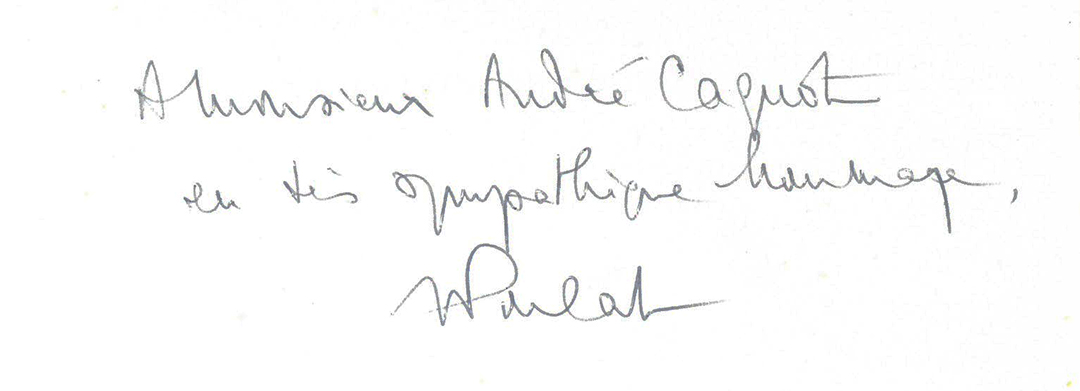 A Monsieur André Caquot
en très sympathique hommage,